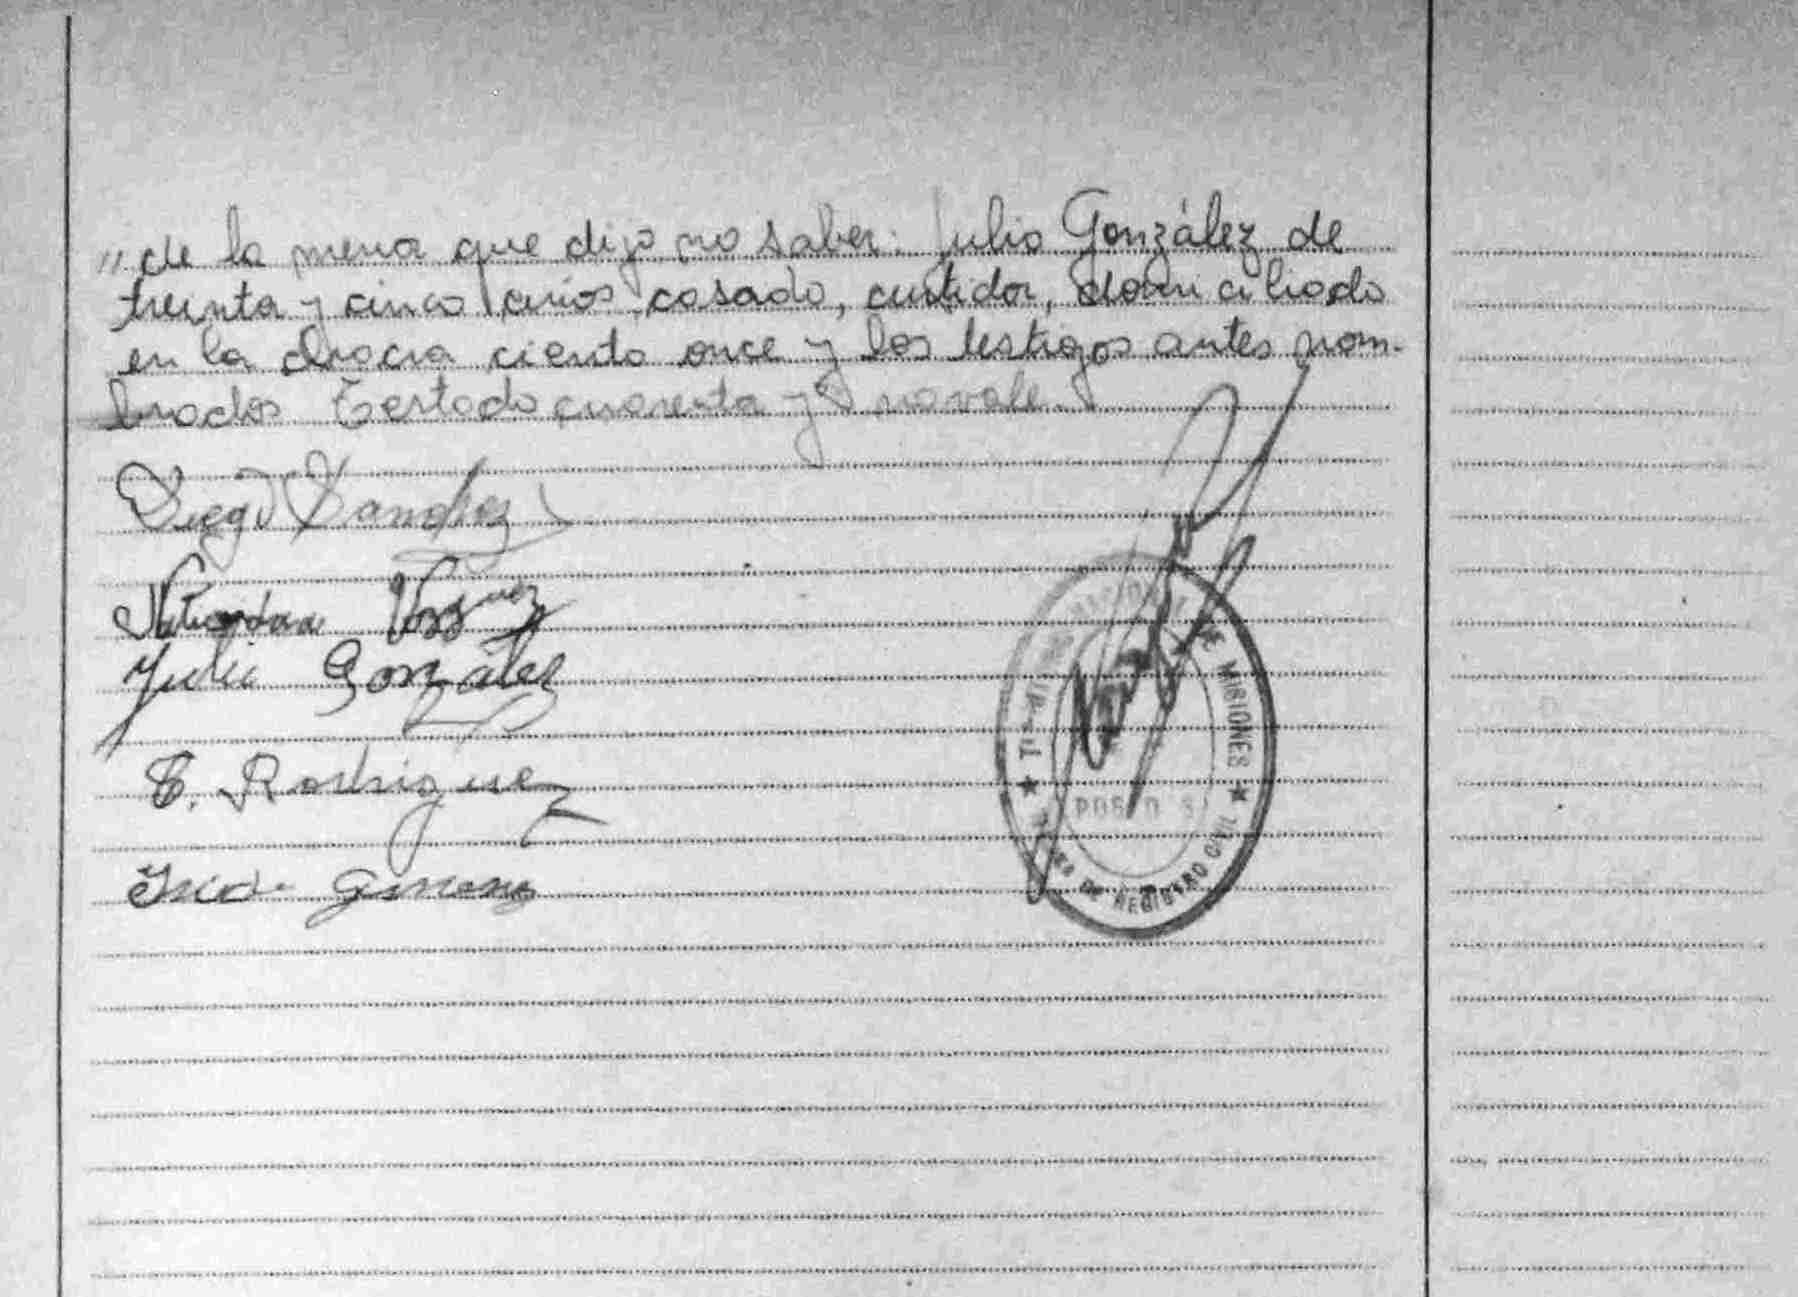 "de la mena que dijo no saber. Julio González de
treinta y cinco años, casado, curtidor, domiciliado
en la Chacra ciento once y los testigos antes nom-
brados Testado cuarenta y no vale
Diego Sanchez
Vasquez
Julio Gonzalez
Rodriguez
DE MISIONES ★
DE REGISTRO CIVIL